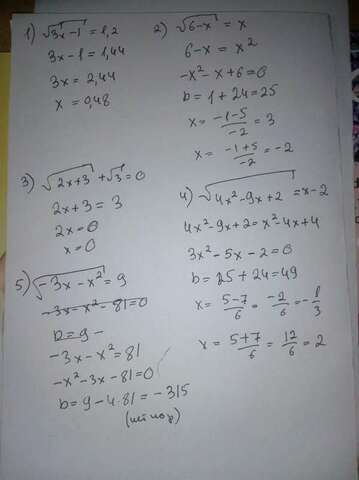 1) √3x-1 = 1,2
3x-1 = 1,44
3x = 2,44
x = 0,48
2) √6-x = x
6-x = x²
-x²-x+6=0
D = 1+24=25
x = -1-5/-2 = 3
x = -1+5/-2 = -2
3) √2x+3 + √3 = 0
2x+3 = 3
2x=0
x=0
4) √4x²-9x+2 = x-2
4x²-9x+2=x²-4x+4
3x²-5x-2=0
D = 25+24=49
x = 5-7/6 = -2/6 = -1/3
x = 5+7/6 = 12/6 = 2
5) √-3x-x² = 9
-3x-x²-81=0
D=9-
-3x-x²=81
-x²-3x-81=0
D=9-4·81=-315